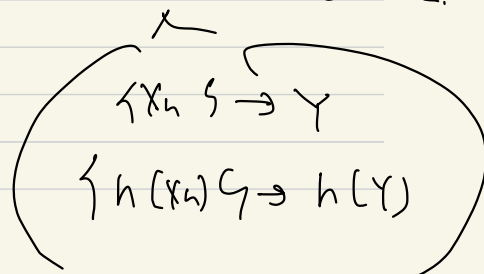 {Xn} → Y
{h(Xn)} → h(Y)